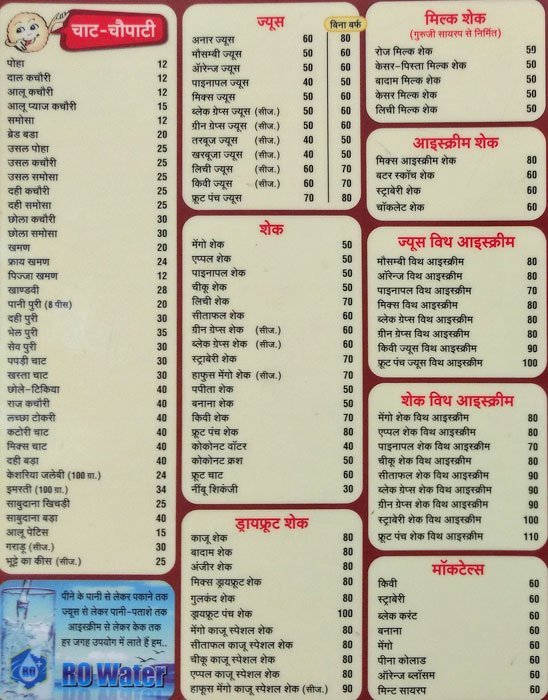 चाट-चौपाटी
पोहा 12
दाल कचौरी 12
आलू कचौरी 12
आलू प्याज कचौरी 15
समोसा 12
ब्रेड बडा 20
उसल पोहा 25
उसल कचौरी 25
उसल समोसा 25
दही कचौरी 25
दही समोसा 25
छोला कचौरी 30
छोला समोसा 30
खमण 20
फ्राय खमण 24
पिज्जा खमण 12
खाण्डवी 28
पानी पुरी (8 पीस) 20
दही पुरी 30
भेल पुरी 35
सेव पुरी 30
पपड़ी चाट 30
खस्ता चाट 30
छोले-टिकिया 40
राज कचौरी 40
लच्छा टोकरी 40
कटोरी चाट 40
मिक्स चाट 40
दही बड़ा 40
केशरिया जलेबी (100 ग्रा.) 24
इमरती (100 ग्रा.) 34
साबुदाना खिचड़ी 25
साबुदाना बड़ा 40
आलू पेटिस 15
गराडू (सीज.) 30
भुट्टे का कीस (सीज.) 25
पीने के पानी से लेकर पकाने तक
ज्यूस से लेकर पानी-पताशे तक
आइस्क्रीम से लेकर केक तक
हर जगह उपयोग में लाते हैं हम..
RO
RO Water
ज्यूस
बिना बर्फ
अनार ज्यूस 60 80
मौसम्बी ज्यूस 50 60
ऑरेन्ज ज्यूस 50 60
पाइनापल ज्यूस 40 50
मिक्स ज्यूस 50 60
ब्लेक ग्रेप्स ज्यूस (सीज.) 50 60
ग्रीन ग्रेप्स ज्यूस (सीज.) 50 60
तरबूज ज्यूस (सीज.) 40 50
खरबूजा ज्यूस (सीज.) 40 50
लिची ज्यूस (सीज.) 60 70
किवी ज्यूस (सीज.) 60 70
फ्रूट पंच ज्यूस 70 80
शेक
मेंगो शेक 50
एप्पल शेक 50
पाइनापल शेक 50
चीकू शेक 50
लिची शेक 70
सीताफल शेक 60
ग्रीन ग्रेप्स शेक (सीज.) 60
ब्लेक ग्रेप्स शेक (सीज.) 60
स्ट्राबेरी शेक 70
हाफुस मेंगो शेक (सीज.) 70
पपीता शेक 50
बनाना शेक 50
किवी शेक 70
फ्रूट पंच शेक 80
कोकोनट वॉटर 40
कोकोनट क्रश 50
फ्रूट चाट 60
नींबू शिकंजी 30
ड्रायफ्रूट शेक
काजू शेक 80
बादाम शेक 80
अंजीर शेक 80
मिक्स ड्रायफ्रूट शेक 80
गुलकंद शेक 80
ड्रायफ्रूट पंच शेक 100
मेंगो काजू स्पेशल शेक 80
सीताफल काजू स्पेशल शेक 80
चीकू काजू स्पेशल शेक 80
एप्पल काजू स्पेशल शेक 80
हाफूस मेंगो काजू स्पेशल शेक (सीज.) 90
मिल्क शेक
(गुरुजी सायरप से निर्मित)
रोज मिल्क शेक 50
केसर-पिस्ता मिल्क शेक 50
बादाम मिल्क शेक 50
केसर मिल्क शेक 50
लिची मिल्क शेक 50
आइस्क्रीम शेक
मिक्स आइस्क्रीम शेक 80
बटर स्कॉच शेक 60
स्ट्राबेरी शेक 60
चॉकलेट शेक 60
ज्यूस विथ आइस्क्रीम
मौसम्बी विथ आइस्क्रीम 80
ऑरेन्ज विथ आइस्क्रीम 80
पाइनापल विथ आइस्क्रीम 70
मिक्स विथ आइस्क्रीम 80
ब्लेक ग्रेप्स विथ आइस्क्रीम 80
ग्रीन ग्रेप्स विथ आइस्क्रीम 80
किवी ज्यूस विथ आइस्क्रीम 90
फ्रूट पंच ज्यूस विथ आइस्क्रीम 100
शेक विथ आइस्क्रीम
मेंगो शेक विथ आइस्क्रीम 80
एप्पल शेक विथ आइस्क्रीम 80
पाइनापल शेक विथ आइस्क्रीम 70
चीकू शेक विथ आइस्क्रीम 80
सीताफल शेक विथ आइस्क्रीम 90
ब्लेक ग्रेप्स शेक विथ आइस्क्रीम 90
ग्रीन ग्रेप्स शेक विथ आइस्क्रीम 90
स्ट्राबेरी शेक विथ आइस्क्रीम 100
फ्रूट पंच शेक विथ आइस्क्रीम 110
मॉकटेल्स
किवी 60
स्ट्राबेरी 60
ब्लेक करंट 60
बनाना 60
मेंगो 60
पीना कोलाड 60
ऑरेन्ज ब्लॉसम 60
मिन्ट सायरस 60